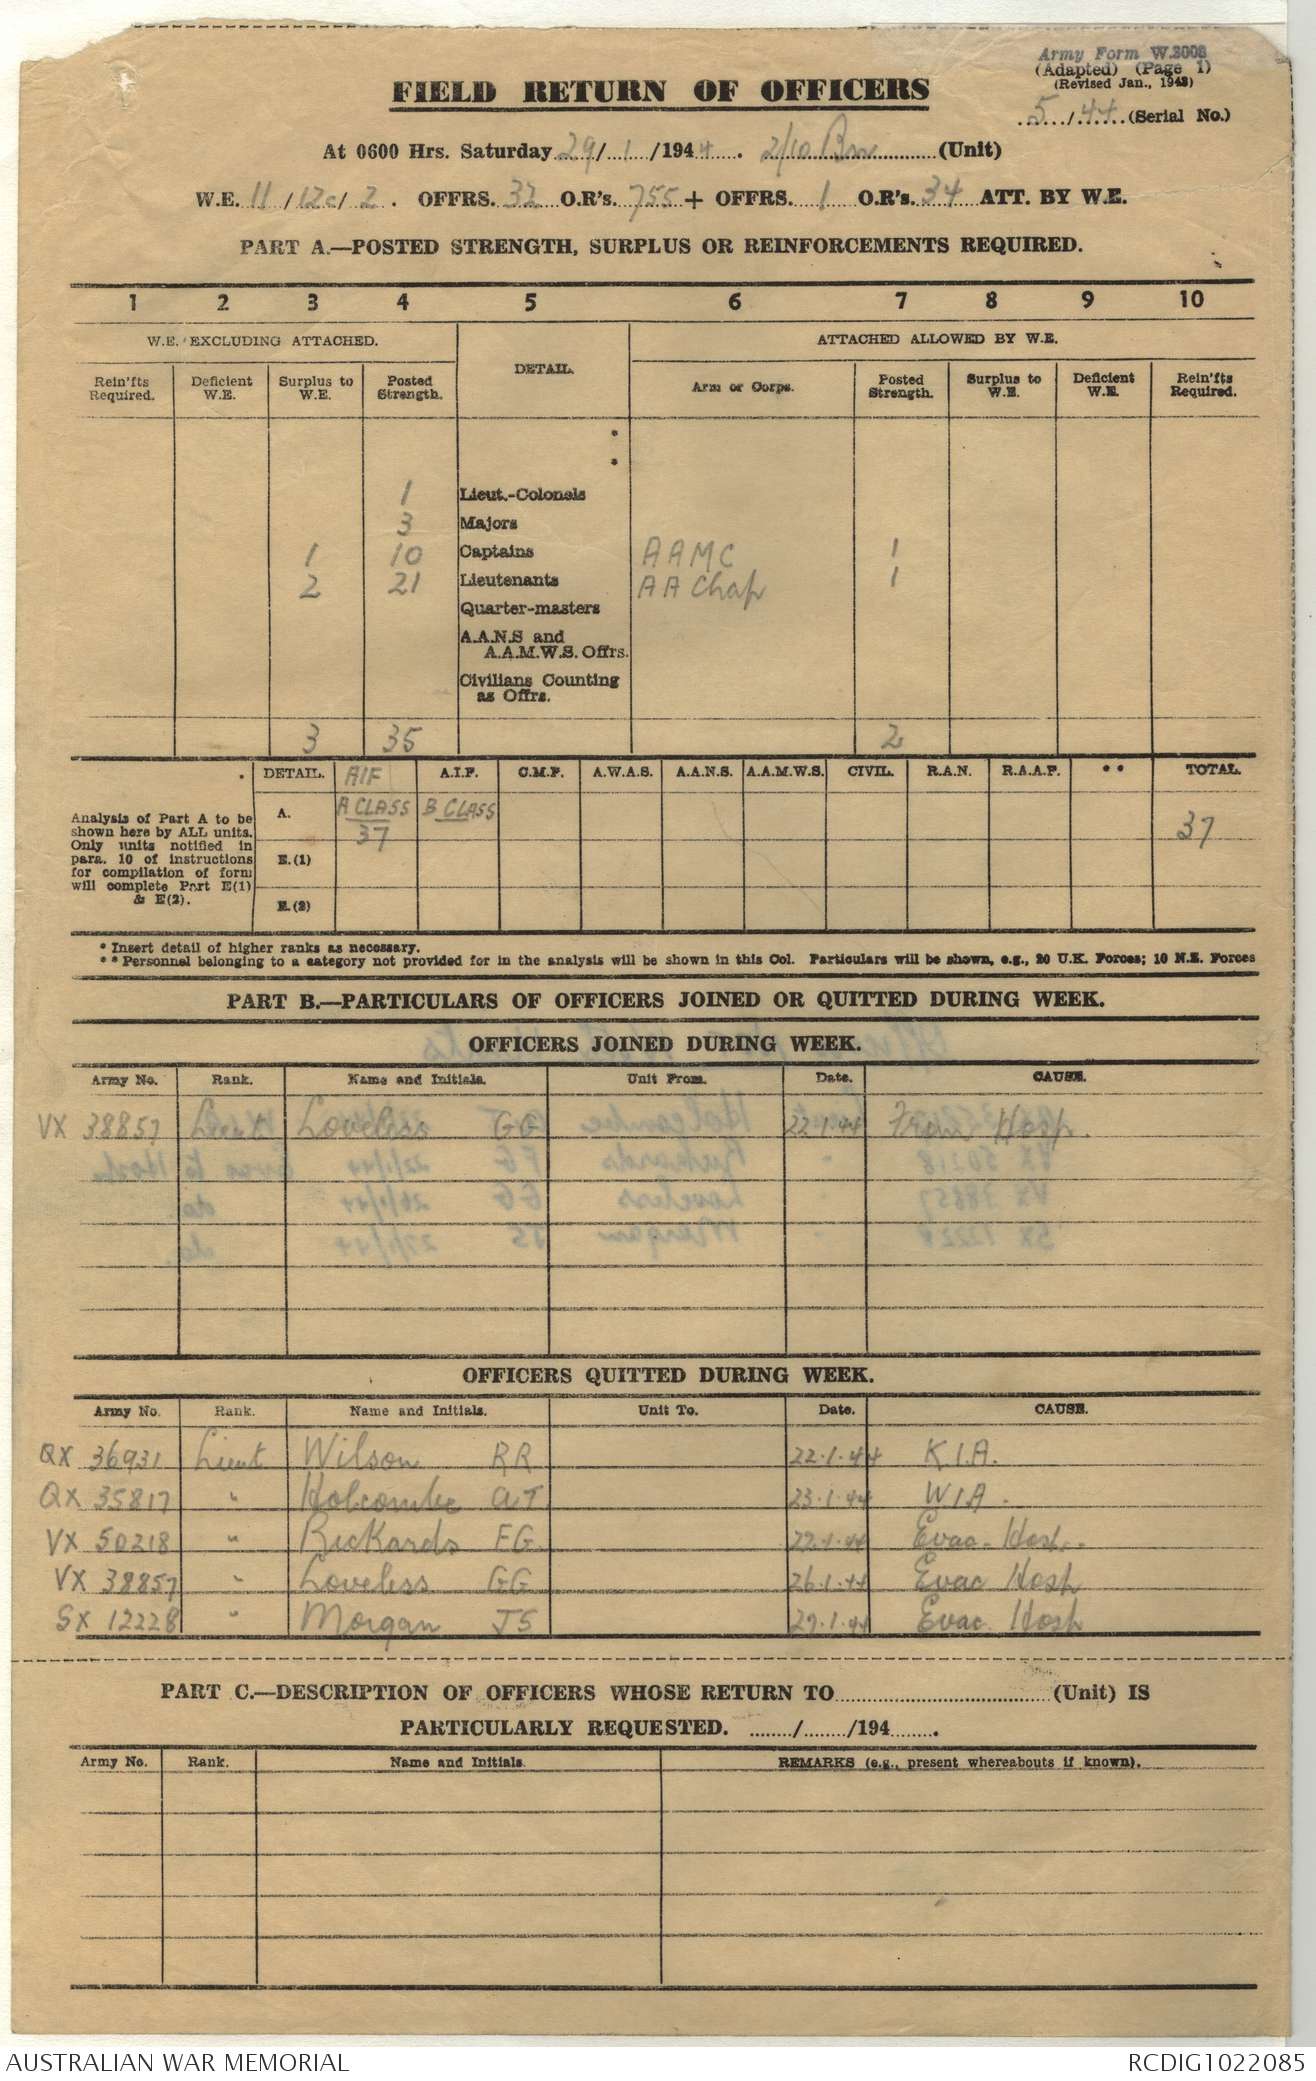 Army Form W.3008
(Adapted) (Page 1)
(Revised Jan., 1943)
FIELD RETURN OF OFFICERS
5/44 (Serial No.)
At 0600 Hrs. Saturday 29/1/1944. 2/10 Bn (Unit)
W.E. 11/12c/2. OFFRS. 32 O.R's. 755 + OFFRS. 1 O.R's. 34 ATT. BY W.E.
PART A.—POSTED STRENGTH, SURPLUS OR REINFORCEMENTS REQUIRED.
1 2 3 4 5 6 7 8 9 10
W.E. EXCLUDING ATTACHED. DETAIL. ATTACHED ALLOWED BY W.E.
Rein'fts Required. Deficient W.E. Surplus to W.E. Posted Strength. Arm or Corps. Posted Strength. Surplus to W.E. Deficient W.E. Rein'fts Required.
*
*
1 Lieut.-Colonels
3 Majors
1 10 Captains AAMC 1
2 21 Lieutenants AA Chap 1
Quarter-masters
A.A.N.S and
A.A.M.W.S. Offrs.
Civilians Counting
as Offrs.
3 35 2
DETAIL. AIF A.I.F. C.M.F. A.W.A.S. A.A.N.S. A.A.M.W.S. CIVIL. R.A.N. R.A.A.F. ** TOTAL.
A. A CLASS 37 B CLASS 37
E.(1)
E.(2)
Analysis of Part A to be
shown here by ALL units.
Only units notified in
para. 10 of instructions
for compilation of form
will complete Part E(1)
& E(2).
* Insert detail of higher ranks as necessary.
** Personnel belonging to a category not provided for in the analysis will be shown in this Col. Particulars will be shown, e.g., 20 U.K. Forces; 10 N.E. Forces
PART B.—PARTICULARS OF OFFICERS JOINED OR QUITTED DURING WEEK.
OFFICERS JOINED DURING WEEK.
Army No. Rank. Name and Initials. Unit From. Date. CAUSE.
VX 38857 Lieut Loveless GG 22.1.44 From Hosp.
OFFICERS QUITTED DURING WEEK.
Army No. Rank. Name and Initials. Unit To. Date. CAUSE.
QX 36931 Lieut Wilson RR 22.1.44 K.I.A.
QX 35817 " Holcombe AT 23.1.44 WIA.
VX 50218 " Rickards FG 22.1.44 Evac. Hosp.
VX 38857 " Loveless GG 26.1.44 Evac Hosp
SX 12228 " Morgan JS 27.1.44 Evac. Hosp
PART C.—DESCRIPTION OF OFFICERS WHOSE RETURN TO (Unit) IS
PARTICULARLY REQUESTED. / /194 .
Army No. Rank. Name and Initials. REMARKS (e.g., present whereabouts if known).
AUSTRALIAN WAR MEMORIAL RCDIG1022085